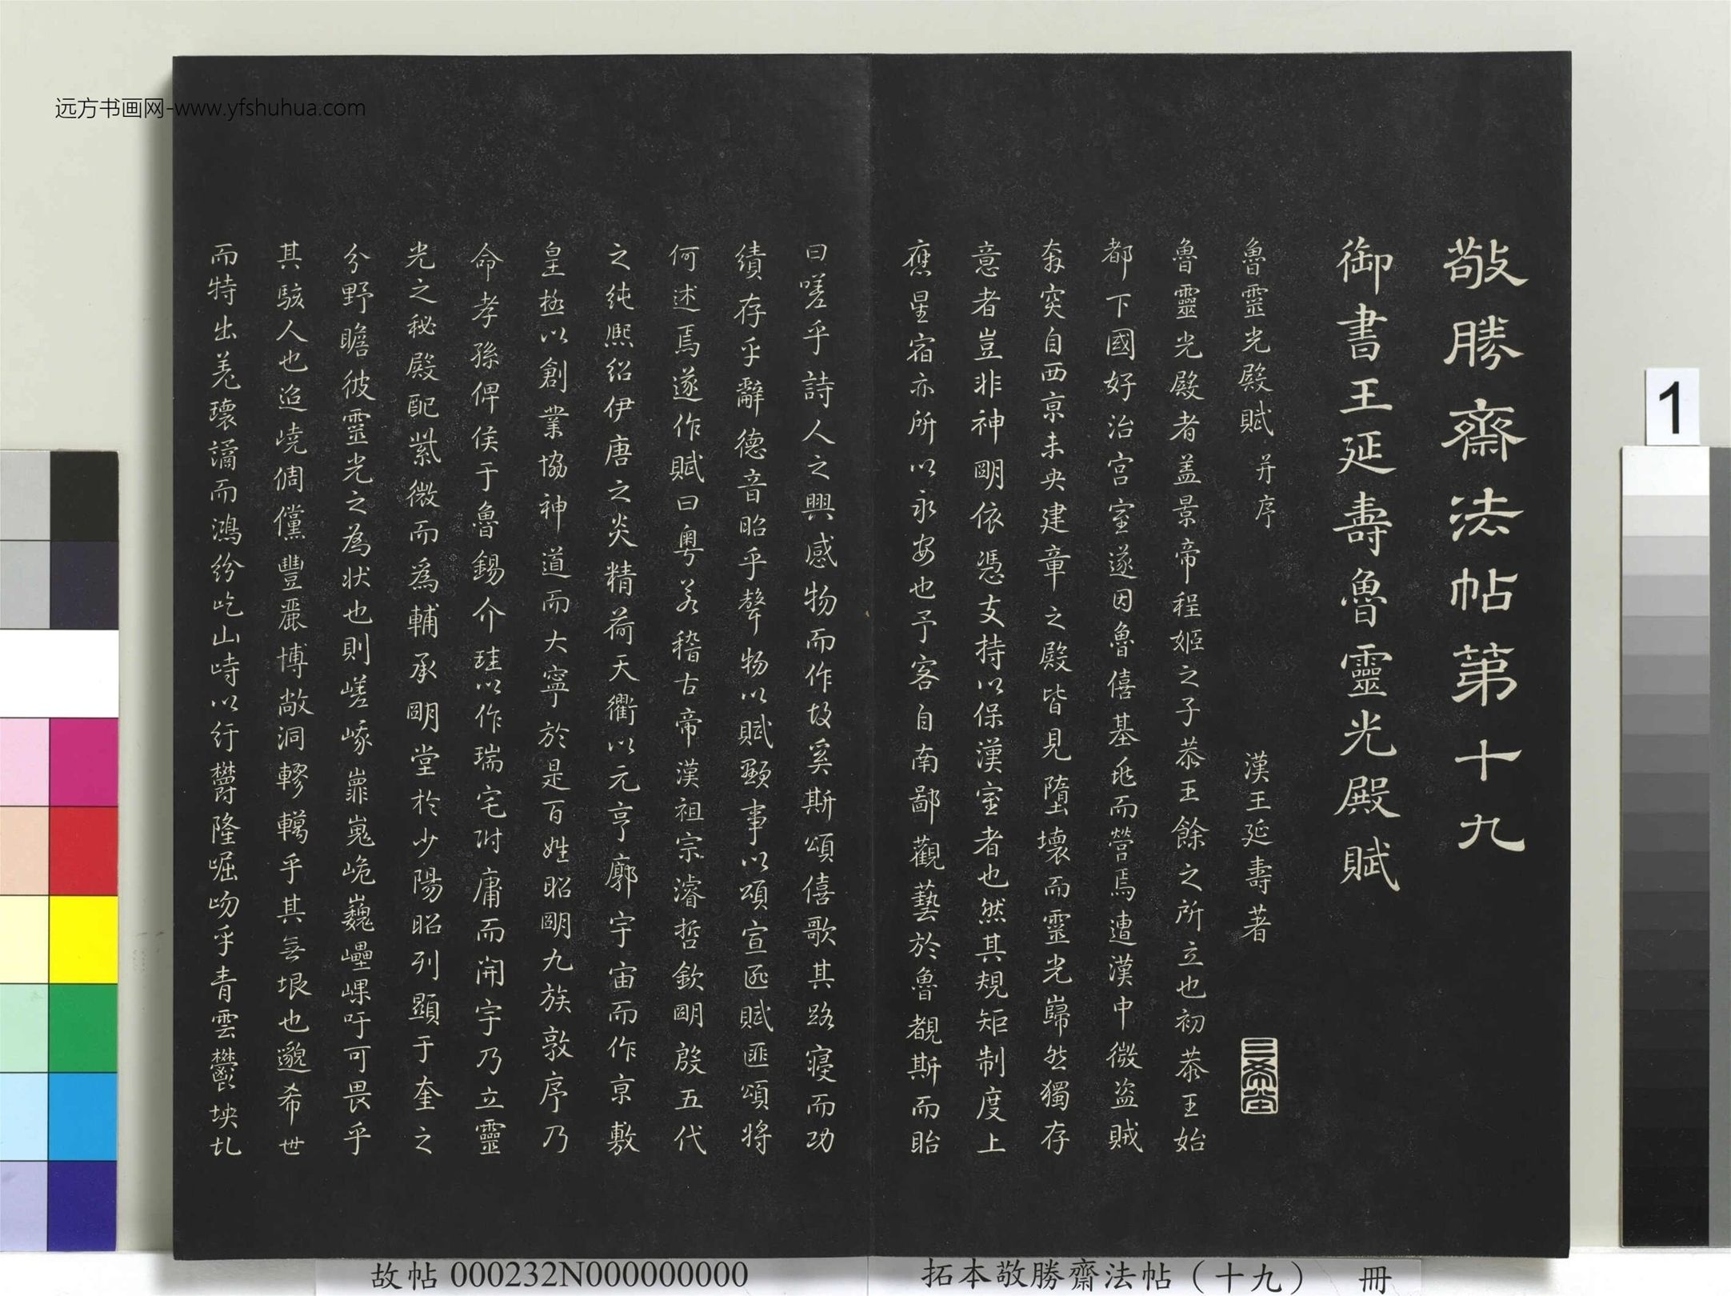 远方书画网-www.yfshuhua.com
敬勝齋法帖第十九
御書王延壽魯靈光殿賦
魯靈光殿賦 并序 漢王延壽著
三希堂
魯靈光殿者蓋景帝程姬之子恭王餘之所立也初恭王始
都下國好治宮室遂因魯僖基兆而營焉遭漢中微盜賊
奔突自西京未央建章之殿皆見墮壞而靈光巋然獨存
意者豈非神明依憑支持以保漢室者也然其規矩制度上
應星宿亦所以永安也予客自南鄙觀藝於魯覩斯而眙
曰嗟乎詩人之興感物而作故奚斯頌僖歌其路寢而功
績存乎辭德音昭乎聲物以賦顯事以頌宣匪賦匪頌將
何述焉遂作賦曰粵若稽古帝漢祖宗濬哲欽明殷五代
之純熙紹伊唐之炎精荷天衢以元亨廓宇宙而作京敷
皇極以創業協神道而大寧於是百姓昭明九族敦序乃
命孝孫俾侯于魯錫介珪以作瑞宅附庸而開宇乃立靈
光之秘殿配紫微而為輔承明堂於少陽昭列顯于奎之
分野瞻彼靈光之為狀也則嵯峨嶵嵬峞巍㠥㟺吁可畏乎
其駭人也迢嶢倜儻豐麗博敞洞轇轕乎其無垠也邈希世
而特出羌瓌譎而鴻紛屹山峙以紆鬱隆崛岉乎青雲鬱坱圠
1
故帖 000232N000000000
拓本敬勝齋法帖（十九） 冊